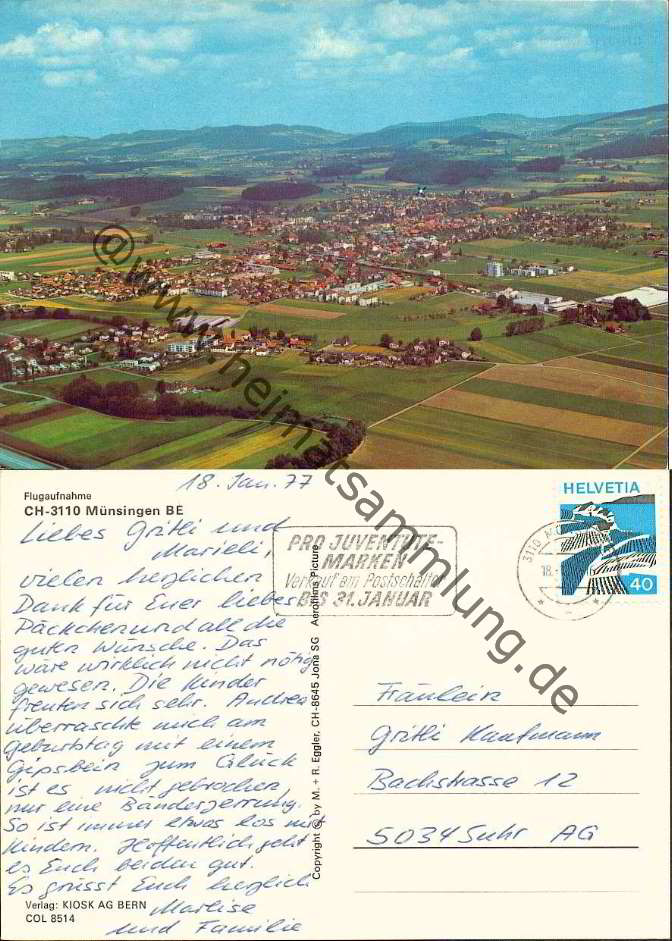 @www.heimatsammlung.de
Flugaufnahme
CH-3110 Münsingen BE
18. Jan. 77
Liebes Gritli und
Marieli,
vielen herzlichen
Dank für Euer liebes
Päckchen und all die
guten Wünsche. Das
wäre wirklich nicht nötig
gewesen. Die Kinder
freuten sich sehr. Andrea
überraschte mich am
Geburtstag mit einem
Gipsbein zum Glück
ist es nicht gebrochen,
nur eine Bänderzerrung.
So ist immer etwas los mit
Kindern. Hoffentlich geht
es Euch beiden gut.
Es grüsst Euch herzlich
Marlise
und Familie
Verlag: KIOSK AG BERN
COL 8514
Copyright © by M. + R. Eggler, CH-8645 Jona SG Aerofilms Picture
PRO JUVENTUTE-
MARKEN
Verkauf am Postschalter
BIS 31. JANUAR
3110
18.
HELVETIA
40
Fräulein
Gritli Kaufmann
Bachstrasse 12
5034 Suhr AG